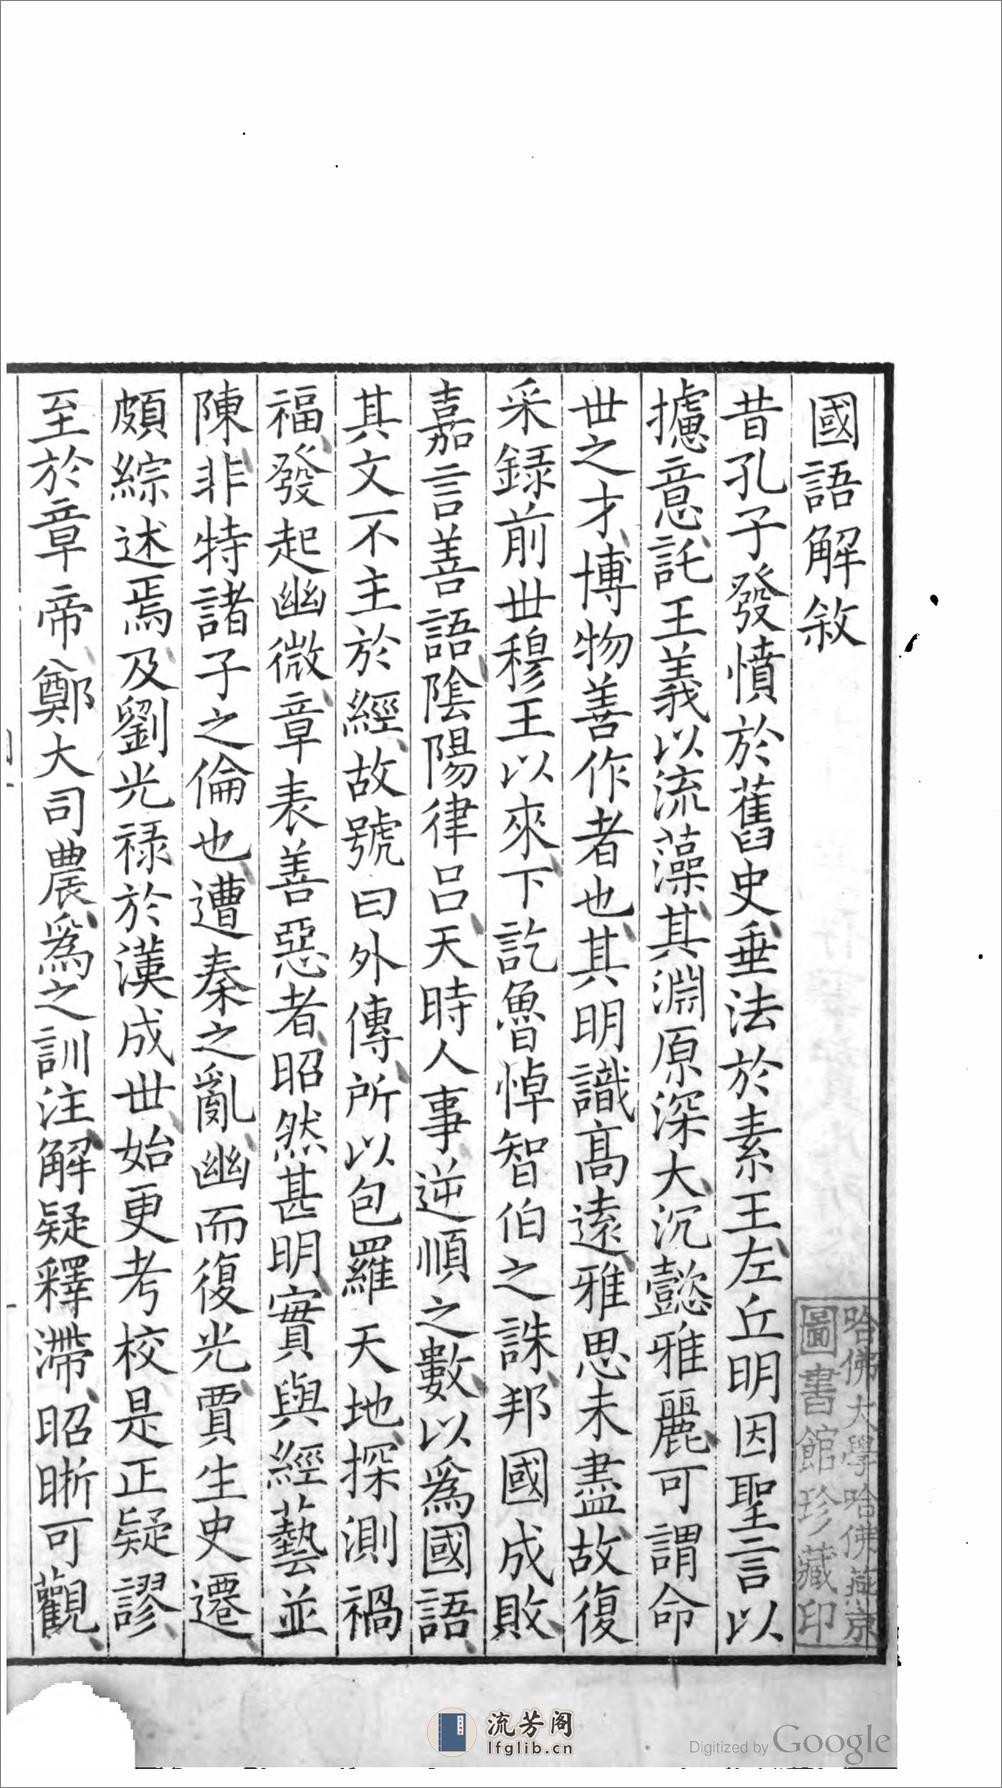 國語解敘
昔孔子發憤於舊史垂法於素王左丘明因聖言以
攄意託王義以流藻其淵原深大沉懿雅麗可謂命
世之才博物善作者也其明識高遠雅思未盡故復
采録前世穆王以來下訖魯悼智伯之誅邦國成敗
嘉言善語陰陽律呂天時人事逆順之數以為國語
其文不主於經故號曰外傳所以包羅天地探測禍
福發起幽微章表善惡者昭然甚明實與經藝並
陳非特諸子之倫也遭秦之亂幽而復光賈生史遷
頗綜述焉及劉光祿於漢成世始更考校是正疑謬
至於章帝鄭大司農為之訓注解疑釋滯昭晰可觀
哈佛大學哈佛燕京
圖書館珍藏印
流芳阁
lfglib.cn
Digitized by Google